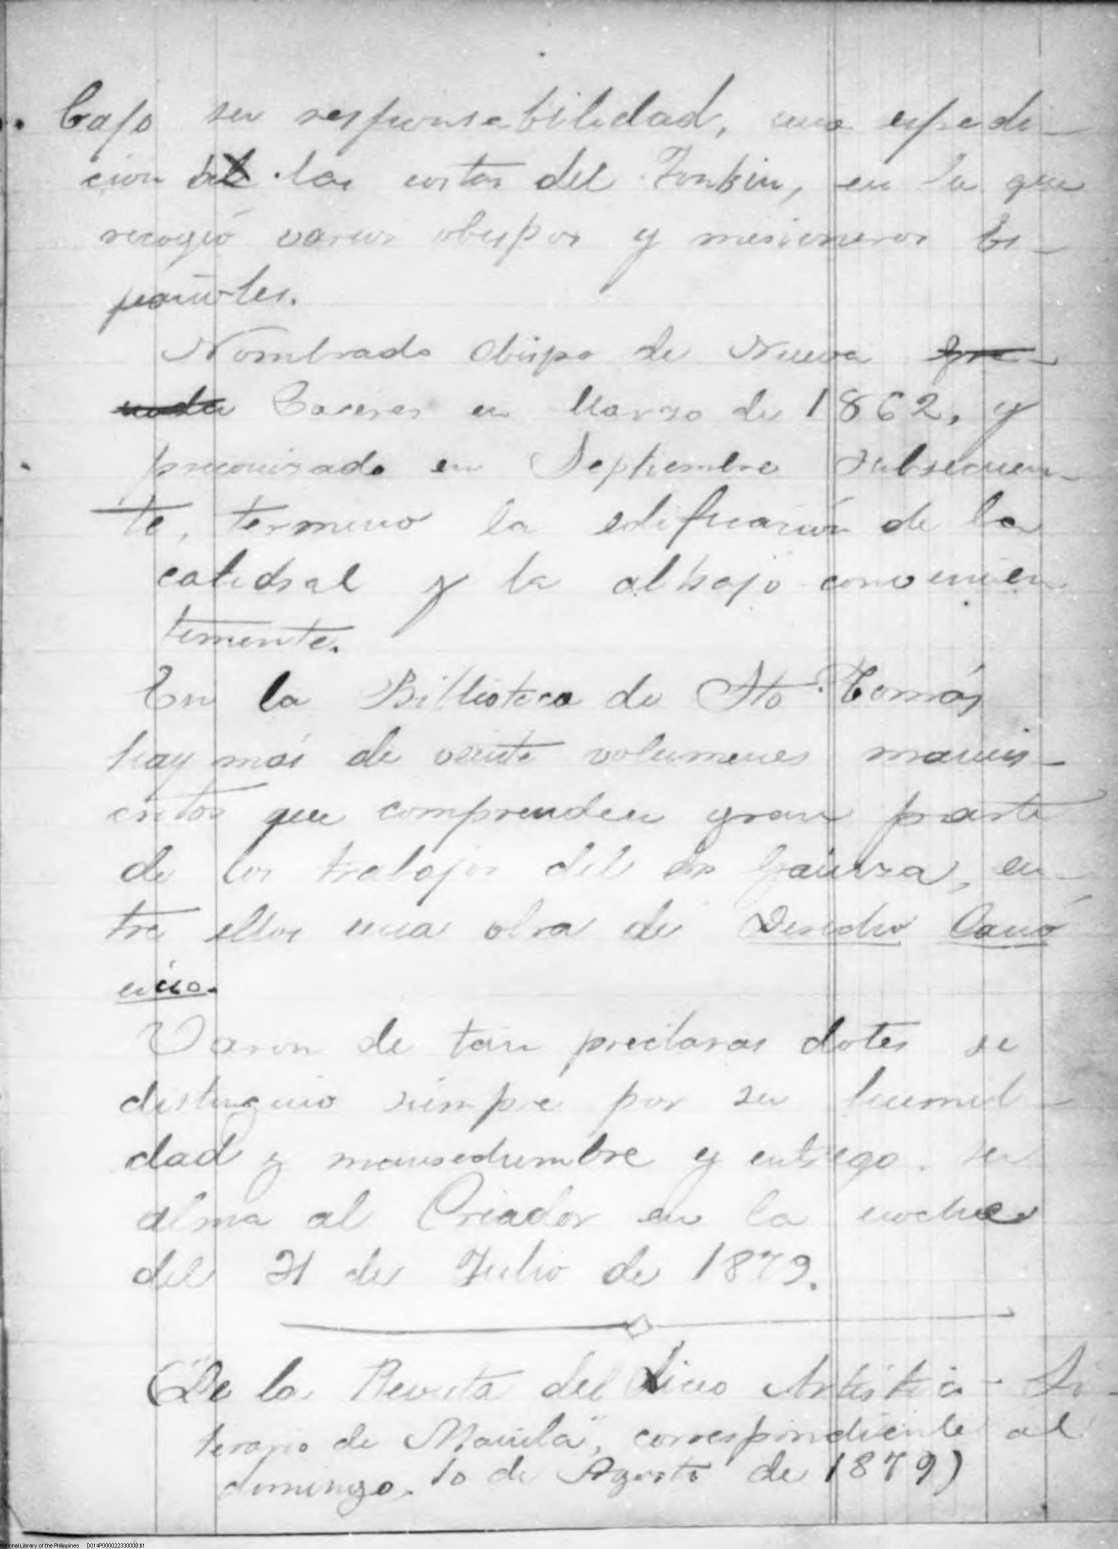 bajo su responsabilidad, una espedi-
cion las costas del Tonkin, en la que
recogió varios obispos y misioneros Es-
pañoles.
Nombrado Obispo de Nueva Gra-
nada Caceres en Marzo de 1862, y
preconizado en Septiembre subsecuen-
te, termino la edificación de la
catedral y la alhajó convenien
temente.
En la Biblioteca de Sto Tomás
hay más de veinte volumenes manus-
critos que comprenden gran parte
de los trabajos del Sr Gainza, en-
tre ellos una obra de Derecho Canó
nico.
Varon de tan preclaras dotes se
distinguio siempre por su humil-
dad y mansedumbre y entrego su
alma al Criador en la noche
del 31 de Julio de 1879.
(De la Revista del Liceo Artístico-Li-
terario de Manila", correspondiente al
domingo, 10 de Agosto de 1879)
National Library of the Philippines